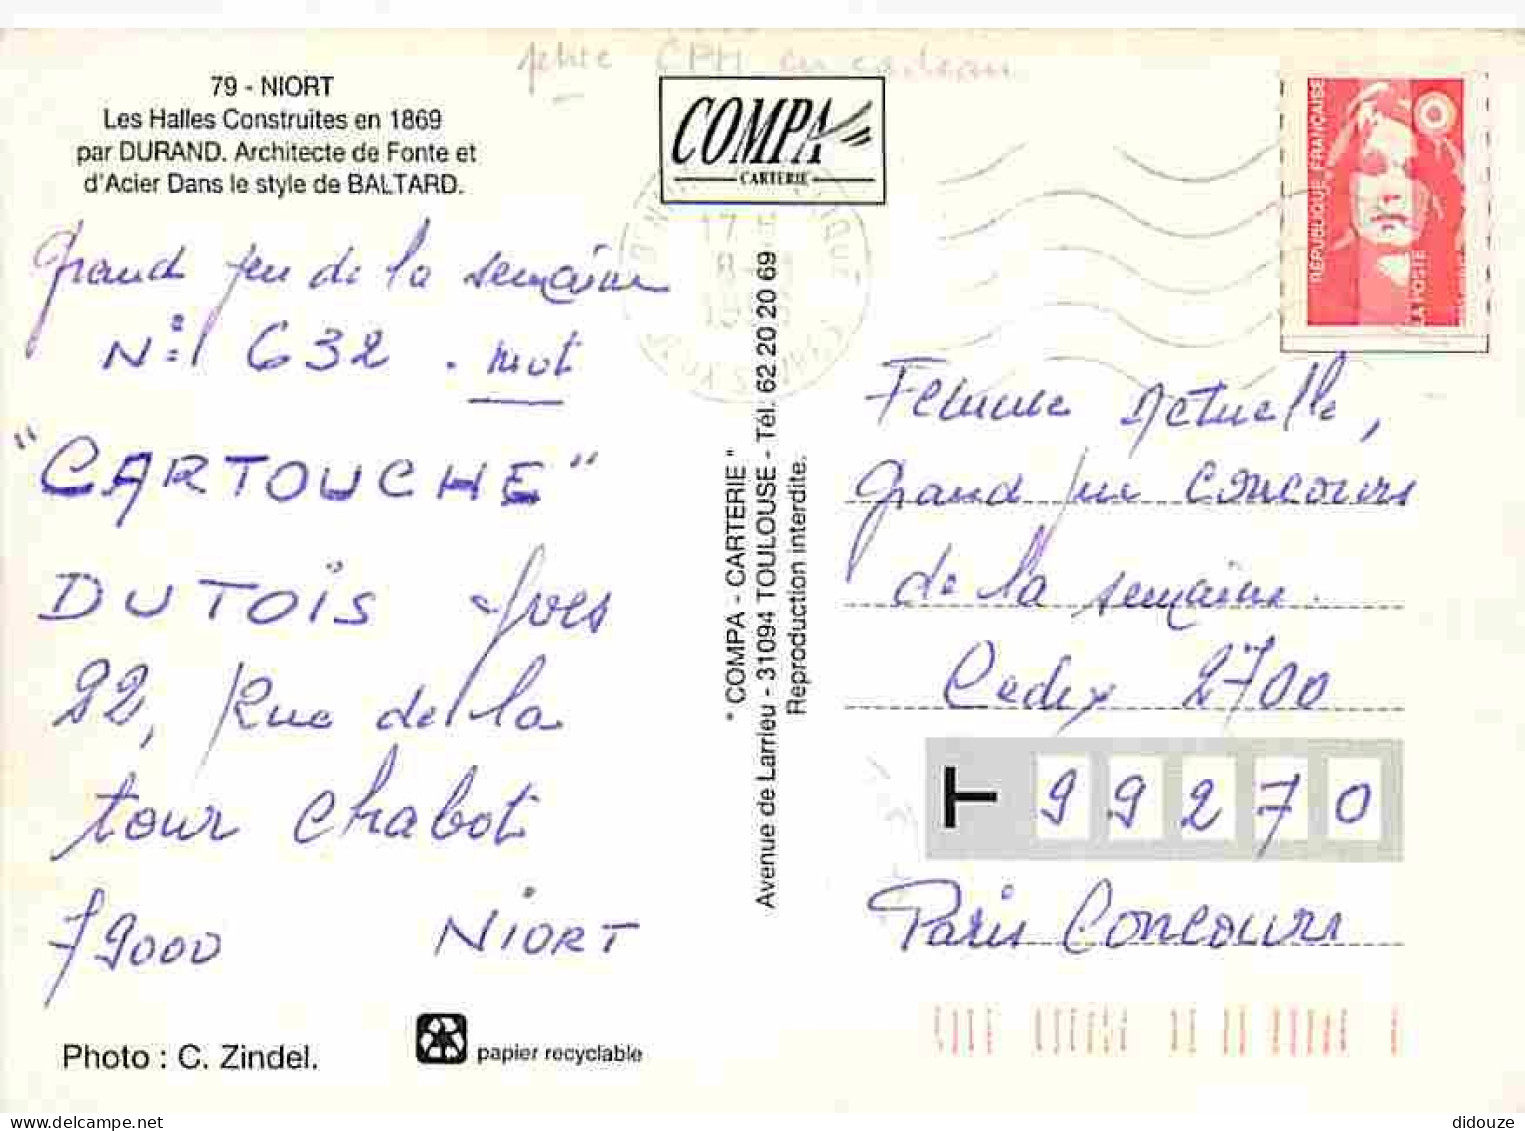 petite CPM en cadeau
79 - NIORT
Les Halles Construites en 1869
par DURAND. Architecte de Fonte et
d'Acier Dans le style de BALTARD.
COMPA
CARTERIE
RÉPUBLIQUE FRANÇAISE
LA POSTE
Grand jeu de la semaine
N:1 632. mot
"CARTOUCHE"
DUTOIS Yves
22, Rue de la
tour Chabot
79000 NIORT
Photo : C. Zindel.
papier recyclable
" COMPA - CARTERIE "
Avenue de Larrieu - 31094 TOULOUSE - Tél. 62 20 20 69
Reproduction interdite.
Femme Actuelle,
Grand jeu concours
de la semaine.
Cedex 2700
99270
Paris Concours
didouze